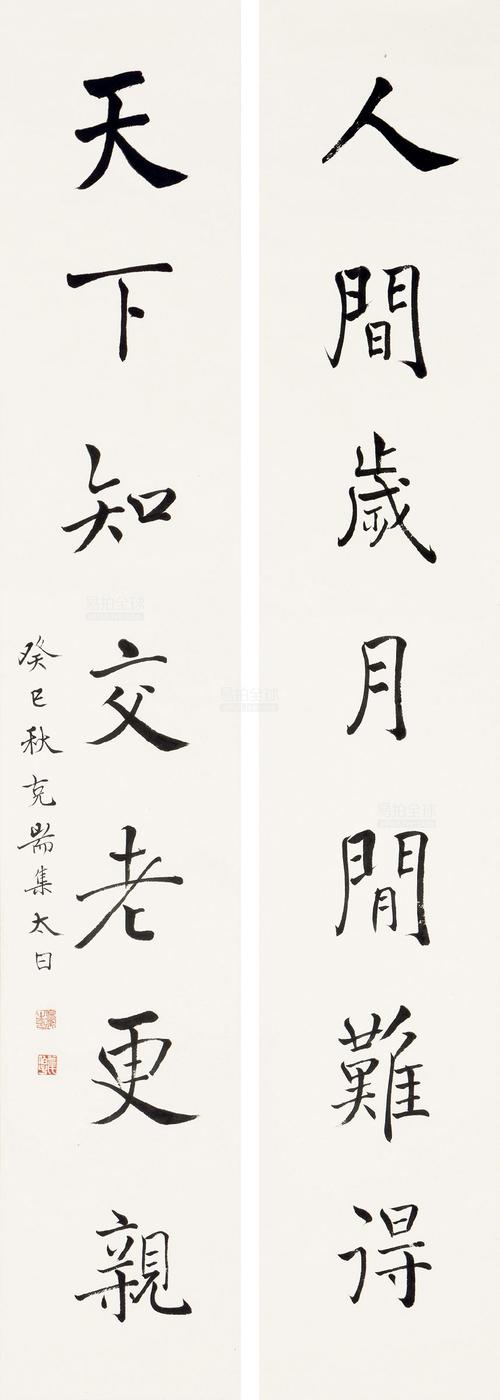 人間歲月閒難得
天下知交老更親
癸巳秋克耑集太日
易拍全球
易拍全球
易拍全球